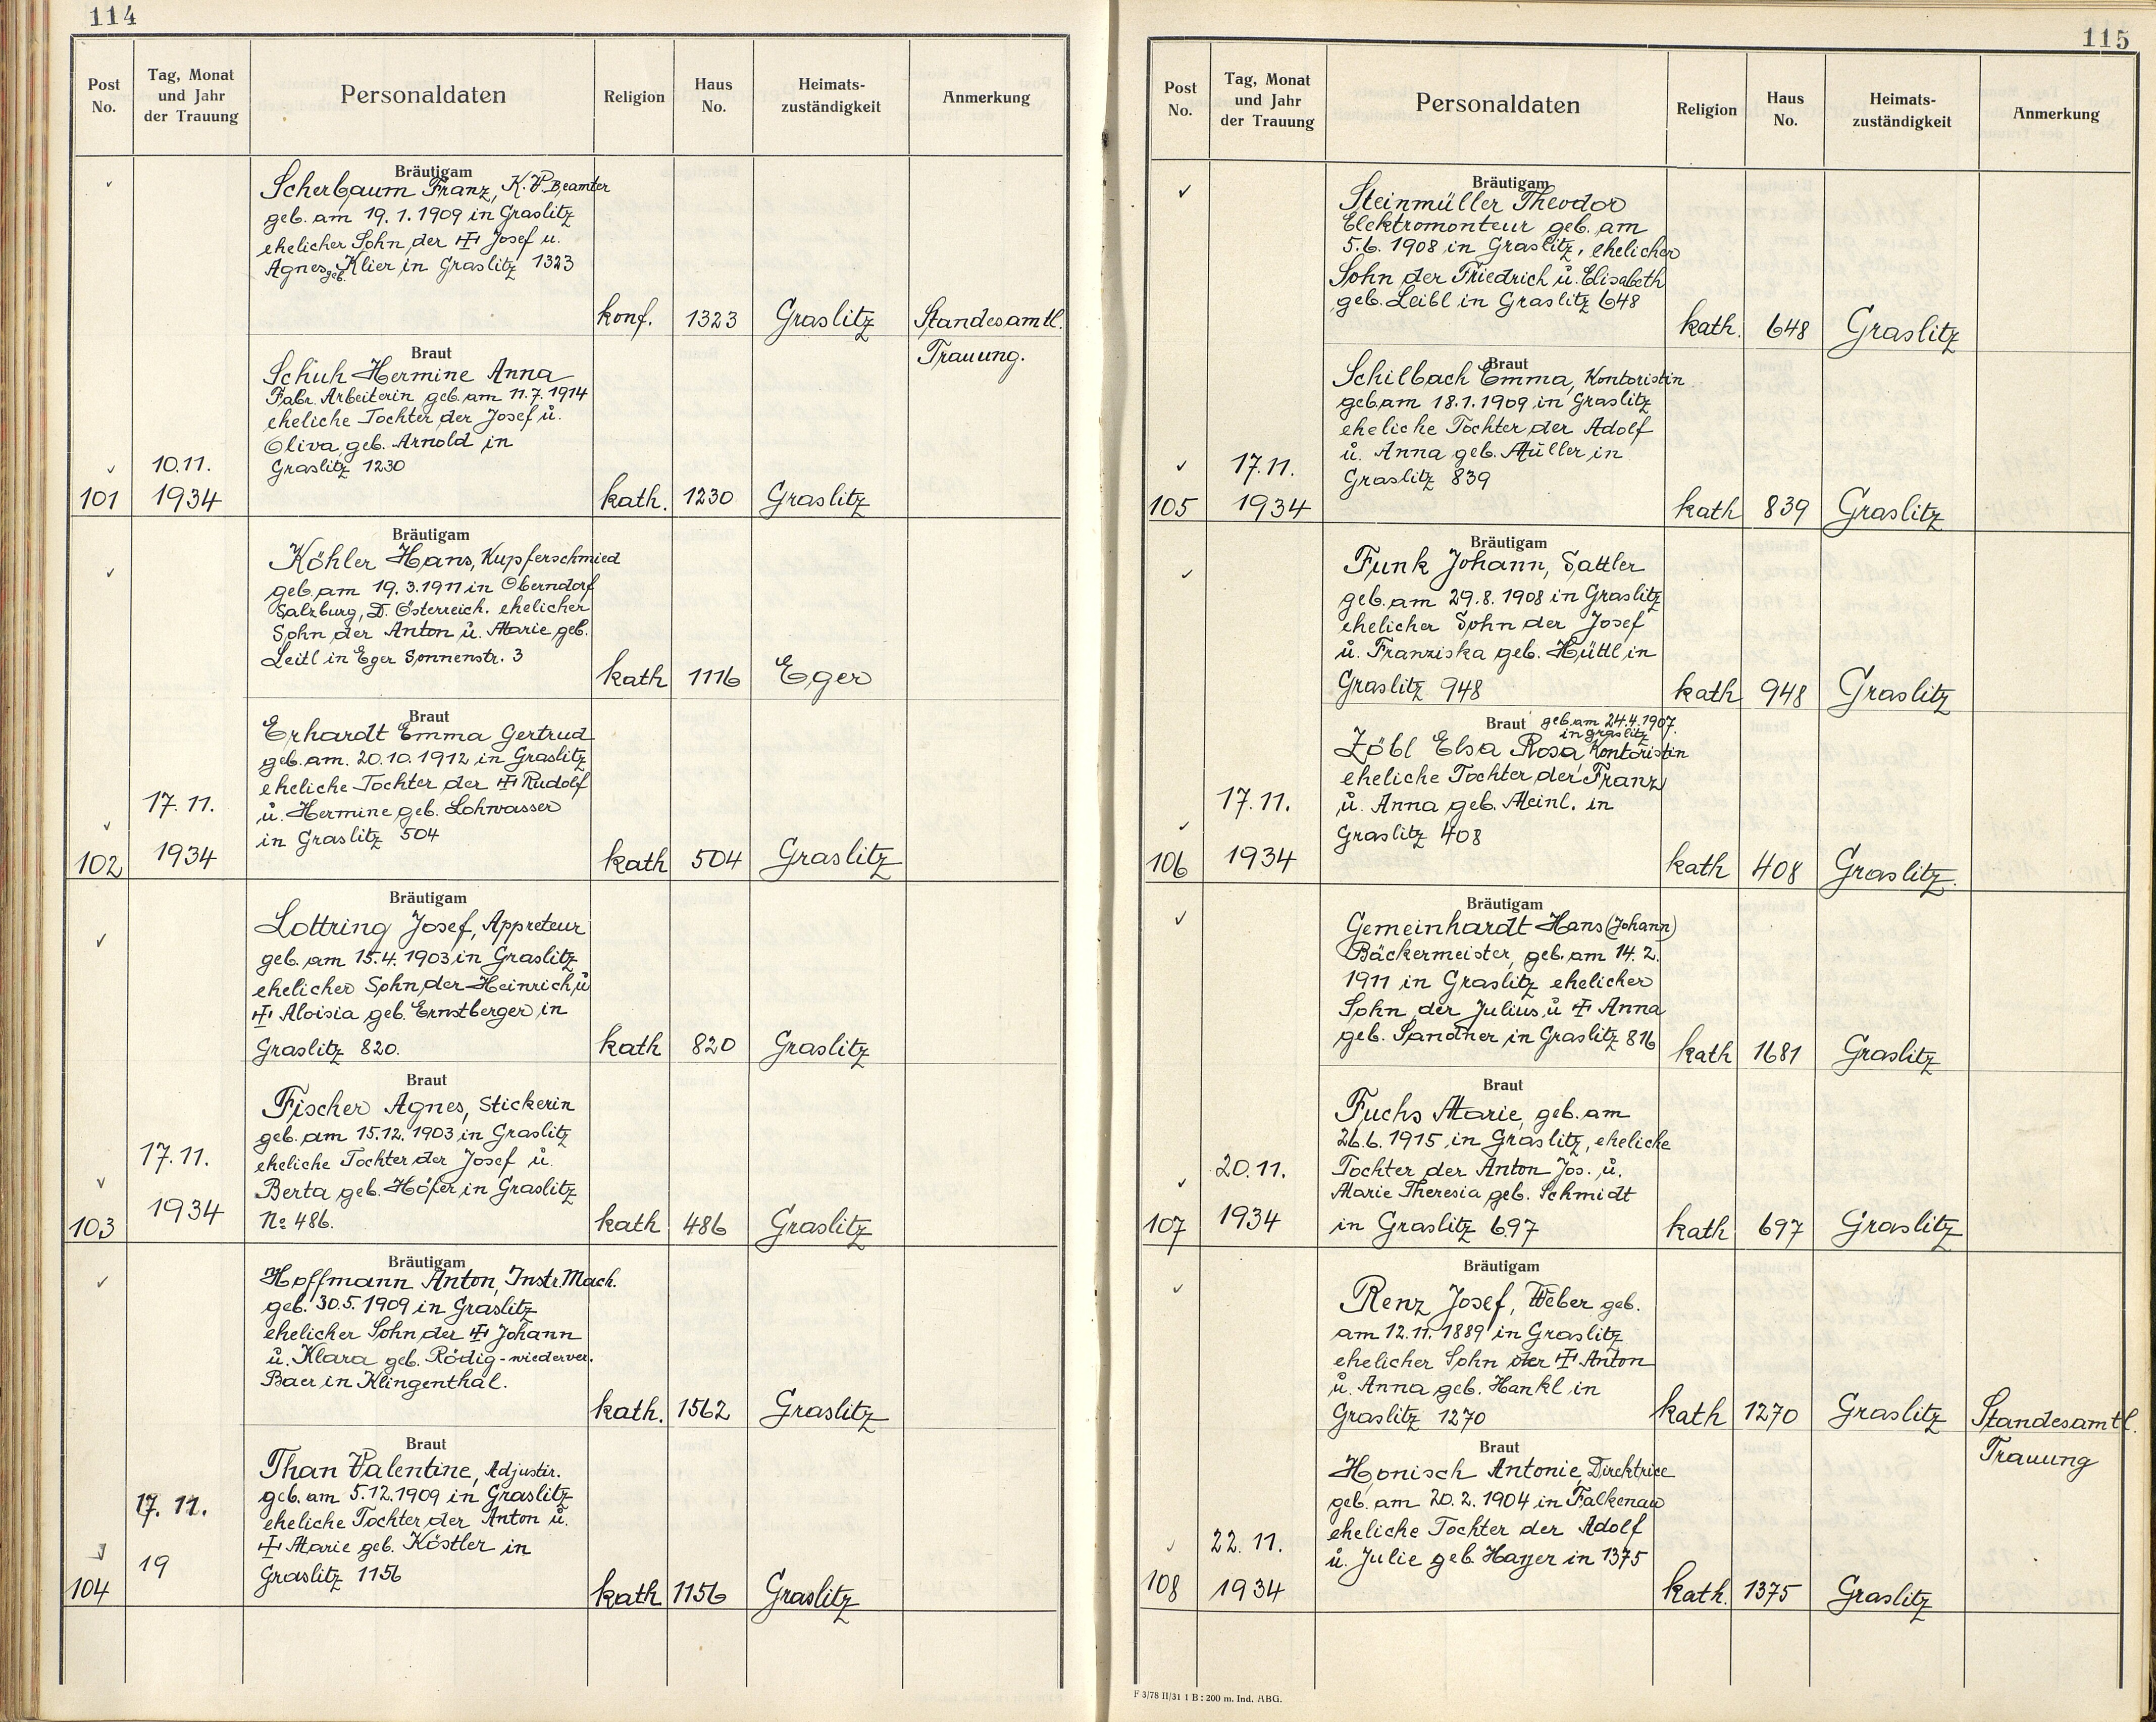 114
Post No.
Tag, Monat und Jahr der Trauung
Personaldaten
Religion
Haus No.
Heimats-zuständigkeit
Anmerkung
Bräutigam
Scherbaum Franz, K.P. Beamter
geb. am 19.1.1909 in Graslitz
ehelicher Sohn der ‡ Josef u.
Agnes geb. Klier in Graslitz 1323
konf. 1323 Graslitz Standesamtl.
Trauung.
Braut
Schuh Hermine Anna
Fabr. Arbeiterin geb. am 11.7.1914
eheliche Tochter der Josef u.
Oliva geb. Arnold in
Graslitz 1230
10.11.
101 1934 kath. 1230 Graslitz
Bräutigam
Köhler Hans, Kupferschmied
geb. am 19.3.1911 in Oberndorf
Salzburg, D. Österreich. ehelicher
Sohn der Anton u. Marie geb.
Leitl in Eger Sonnenstr. 3
kath 1116 Eger
Braut
Erhardt Emma Gertrud
geb. am. 20.10.1912 in Graslitz
eheliche Tochter der ‡ Rudolf
u. Hermine geb. Lohwasser
in Graslitz 504
17.11.
102 1934 kath 504 Graslitz
Bräutigam
Lottring Josef, Appreteur
geb. am 15.4.1903 in Graslitz
ehelicher Sohn der Heinrich u
‡ Aloisia geb. Ernstberger in
Graslitz 820.
kath 820 Graslitz
Braut
Fischer Agnes, Stickerin
geb. am 15.12.1903 in Graslitz
eheliche Tochter der Josef u.
Berta geb. Höfer in Graslitz
No 486.
17.11.
103 1934 kath 486 Graslitz
Bräutigam
Hoffmann Anton, Instr. Mach.
geb. 30.5.1909 in Graslitz
ehelicher Sohn der ‡ Johann
u. Klara geb. Rödig - wiederver.
Baer in Klingenthal.
kath. 1562 Graslitz
Braut
Than Valentine, Adjustir.
geb. am 5.12.1909 in Graslitz
eheliche Tochter der Anton u.
‡ Marie geb. Köstler in
Graslitz 1156
17. 11.
19
104 kath 1156 Graslitz
115
Post No.
Tag, Monat und Jahr der Trauung
Personaldaten
Religion
Haus No.
Heimats-zuständigkeit
Anmerkung
Bräutigam
Steinmüller Theodor
Elektromonteur geb. am
5.6.1908 in Graslitz, ehelicher
Sohn der Friedrich u. Elisabeth
geb. Leibl in Graslitz 648
kath. 648 Graslitz
Braut
Schilbach Emma, Kontoristin
geb. am 18.1.1909 in Graslitz
eheliche Tochter der Adolf
u. Anna geb. Müller in
Graslitz 839
17.11.
105 1934 kath 839 Graslitz
Bräutigam
Funk Johann, Sattler
geb. am 29.8.1908 in Graslitz
ehelicher Sohn der Josef
u. Franziska geb. Hüttl in
Graslitz 948
kath 948 Graslitz
Braut geb. am 24.4.1907.
in Graslitz
Zöbl Elsa Rosa, Kontoristin
eheliche Tochter der Franz
u. Anna geb. Meinl. in
Graslitz 408
17.11.
106 1934 kath 408 Graslitz.
Bräutigam
Gemeinhardt Hans (Johann)
Bäckermeister, geb. am 14.2.
1911 in Graslitz ehelicher
Sohn der Julius u ‡ Anna
geb. Sandner in Graslitz 816
kath 1681 Graslitz
Braut
Fuchs Marie, geb. am
26.6.1915 in Graslitz, eheliche
Tochter der Anton Jos. u.
Marie Theresia geb. Schmidt
in Graslitz 697
20.11.
107 1934 kath 697 Graslitz
Bräutigam
Renz Josef, Weber geb.
am 12.11.1889 in Graslitz
ehelicher Sohn der ‡ Anton
u. Anna geb. Hankl in
Graslitz 1270
kath 1270 Graslitz Standesamtl.
Trauung
Braut
Honisch Antonie, Direktrice
geb. am 20.2.1904 in Falkenau
eheliche Tochter der Adolf
u. Julie geb. Hayer in 1375
22.11.
108 1934 kath. 1375 Graslitz
F 3/78 II/31 1 B : 200 m. Ind. ABG.